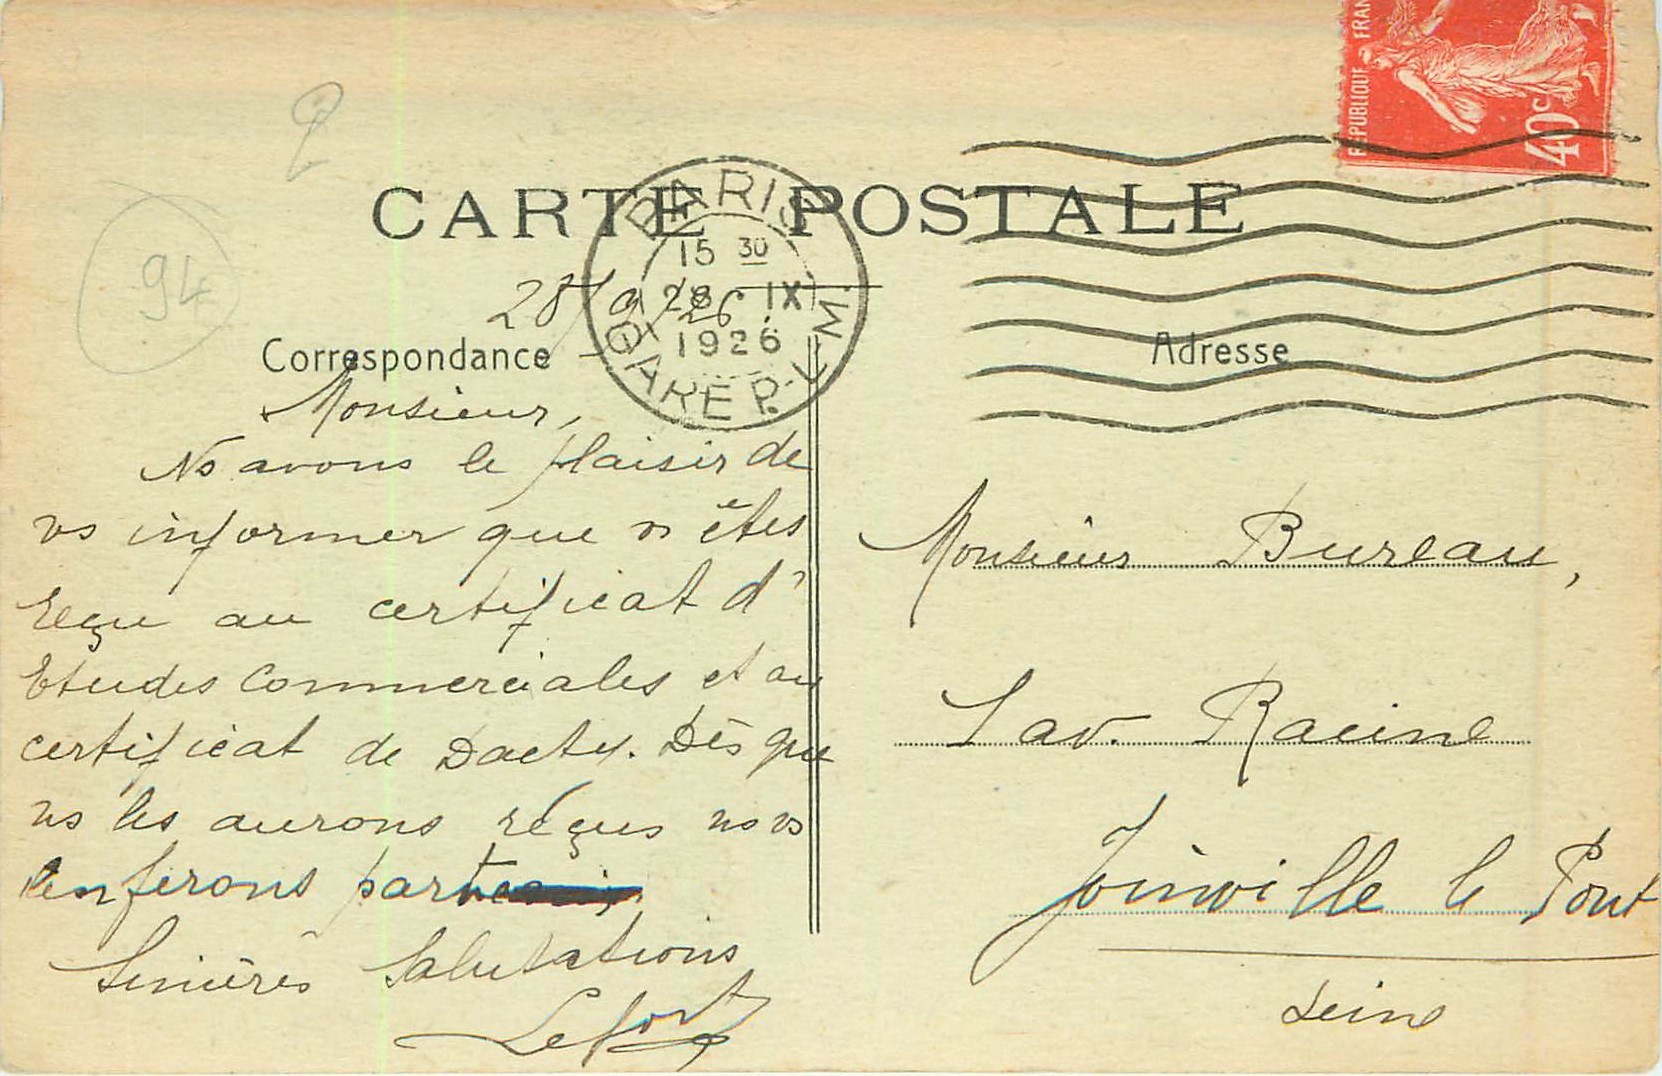 2
94
CARTE POSTALE
RÉPUBLIQUE FRAN
40c
PARIS
15 30
28 IX
1926
GARE P.L.M.
28/9/26
Correspondance
Adresse
Monsieur,
Ns avons le plaisir de
vs informer que vs êtes
reçu au certificat d'
Etudes Commerciales et au
certificat de Dacty. Dès que
ns les aurons reçus ns vs
en ferons part
Sincères Salutations
Lefort
Monsieur Bureau,
1 av. Racine
Joinville le Pont
Seine